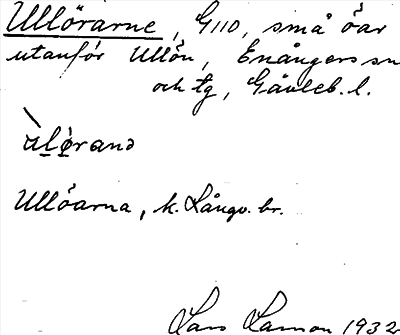 Ullörarne, G110, små öar
utanför Ullön, Enångers sn
och tg, Gävleb. l.
ùlørana
Ullöarna, k. Långv. br.
Lars Larson 1932